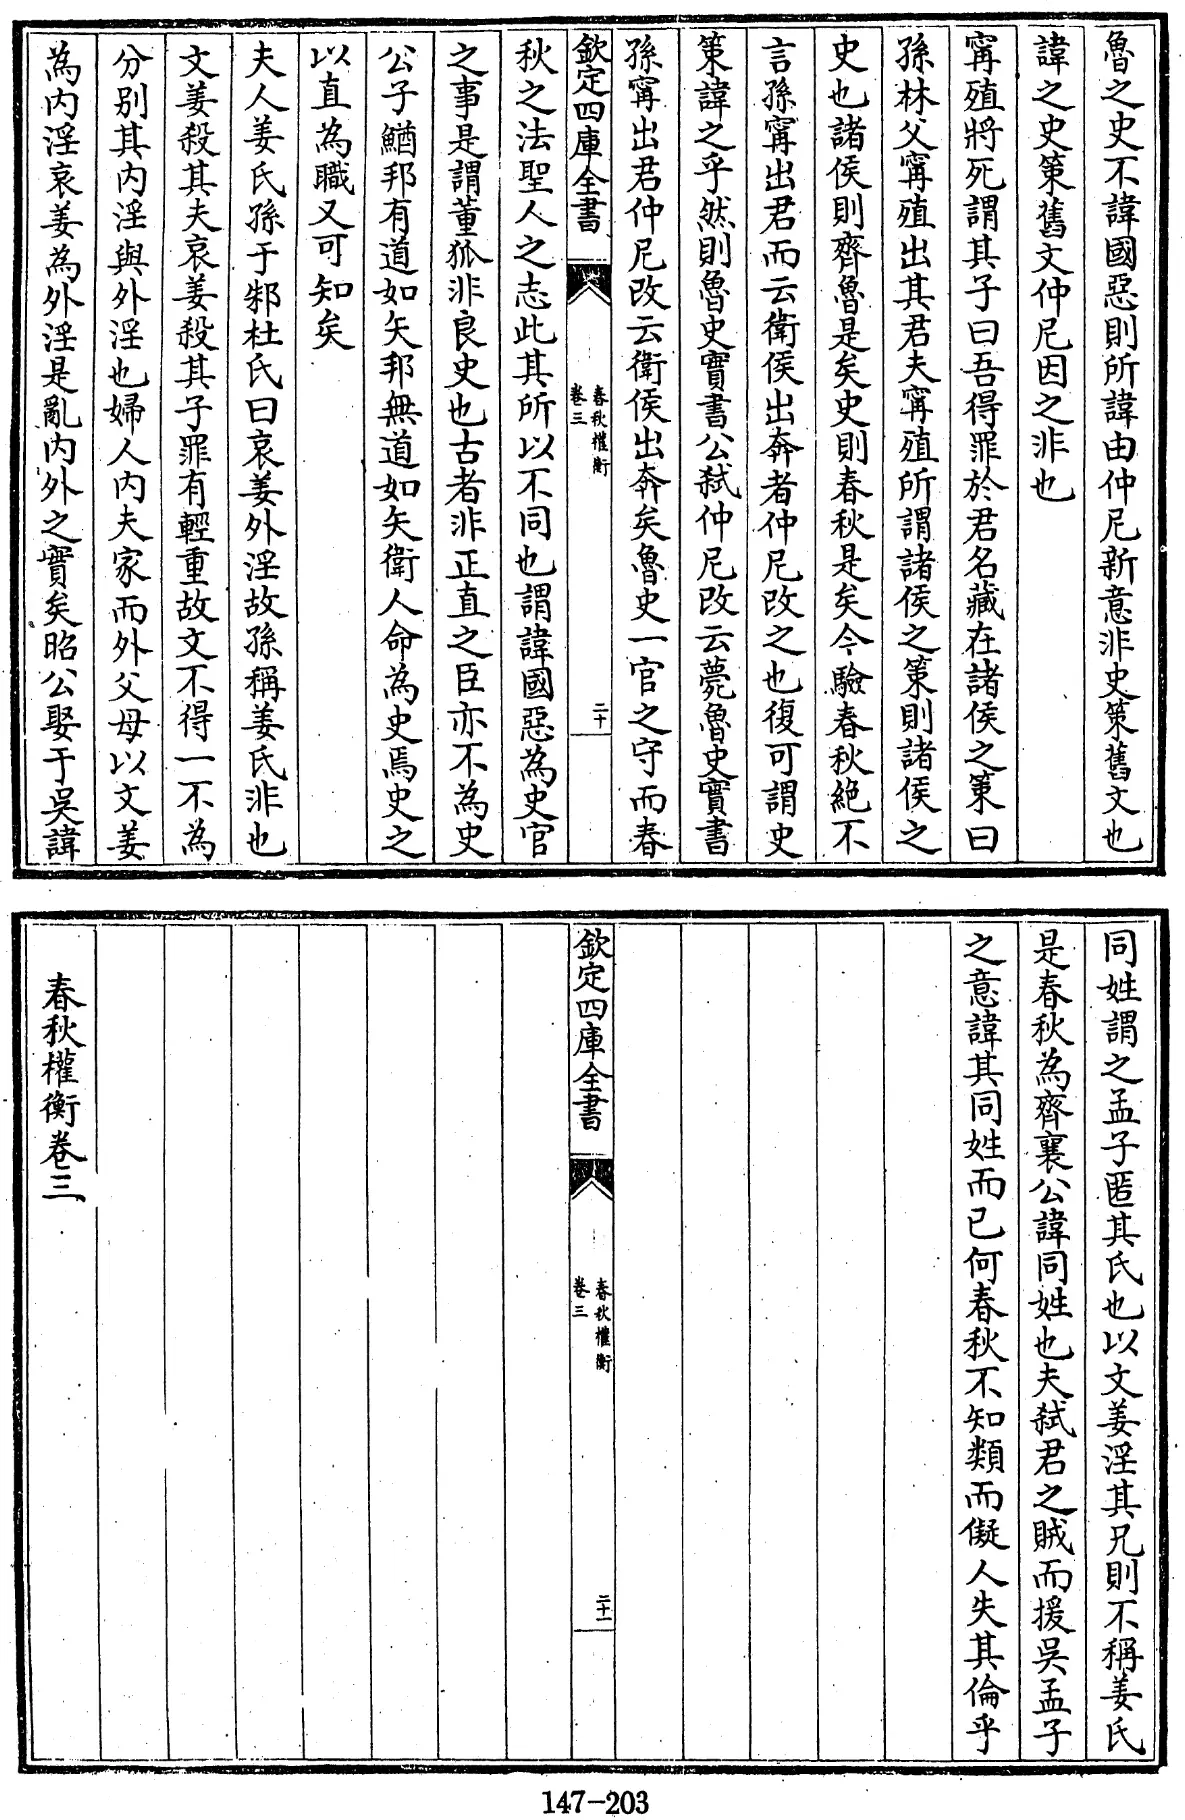 魯之史不諱國惡則所諱由仲尼新意非史策舊文也
諱之史策舊文仲尼因之非也
甯殖將死謂其子曰吾得罪於君名藏在諸侯之策曰
孫林父甯殖出其君夫甯殖所謂諸侯之策則諸侯之
史也諸侯則齊魯是矣史則春秋是矣今驗春秋絶不
言孫甯出君而云衛侯出奔者仲尼改之也復可謂史
策諱之乎然則魯史實書公弑仲尼改云薨魯史實書
孫甯出君仲尼改云衛侯出奔矣魯史一官之守而春
欽定四庫全書
春秋權衡
卷三
二十
秋之法聖人之志此其所以不同也謂諱國惡為史官
之事是謂董狐非良史也古者非正直之臣亦不為史
公子鰌邦有道如矢邦無道如矢衛人命為史焉史之
以直為職又可知矣
夫人姜氏孫于邾杜氏曰哀姜外淫故孫稱姜氏非也
文姜殺其夫哀姜殺其子罪有輕重故文不得一不為
分別其內淫與外淫也婦人內夫家而外父母以文姜
為內淫哀姜為外淫是亂內外之實矣昭公娶于吳諱
同姓謂之孟子匿其氏也以文姜淫其兄則不稱姜氏
是春秋為齊襄公諱同姓也夫弑君之賊而援吳孟子
之意諱其同姓而已何春秋不知類而儗人失其倫乎
欽定四庫全書
春秋權衡
卷三
二十一
春秋權衡卷三
147-203